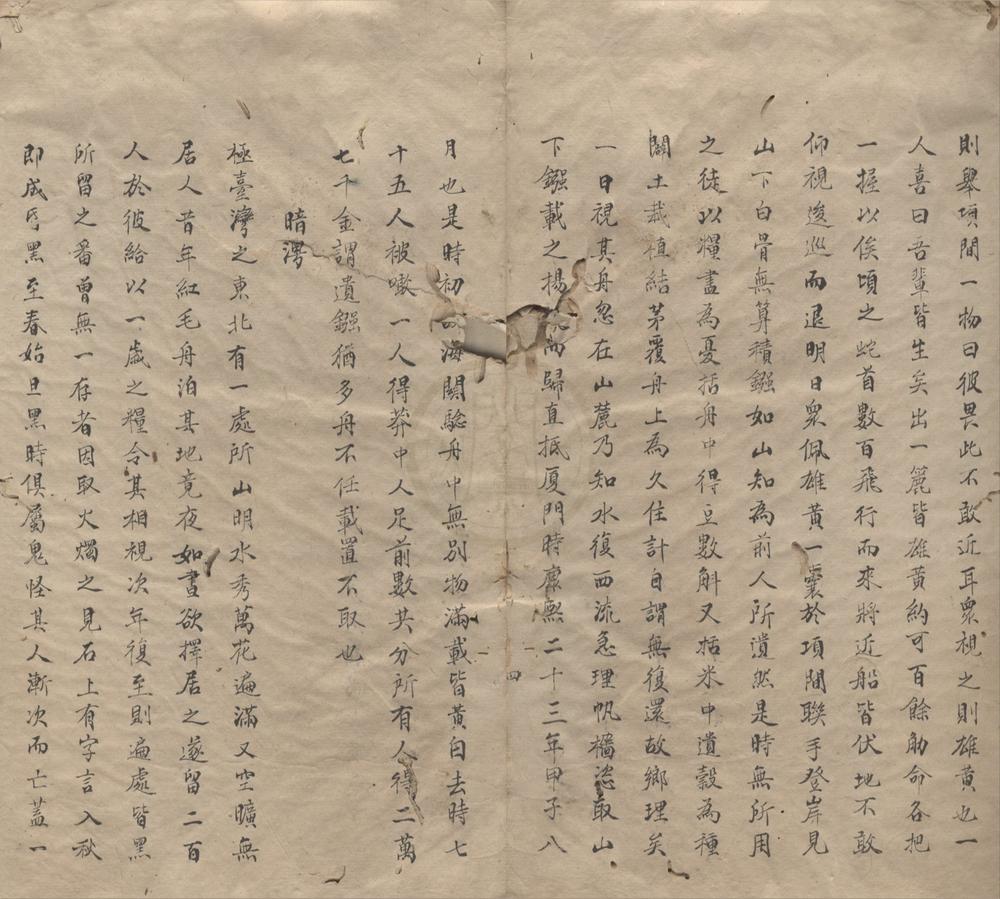 則舉項間一物曰彼畏此不敢近耳衆視之則雄黃也一
人喜曰吾輩皆生矣出一簏皆雄黃約可百餘觔命各把
一握以俟頃之蛇首數百飛行而來將近船皆伏地不敢
仰視逡巡而退明日衆佩雄黃一囊於項間聯手登岸見
山下白骨無算積鏹如山知為前人所遺然是時無所用
之徒以糧盡為憂括舟中得豆數斛又括米中遺穀為種
闢土栽植結茅覆舟上為久住計自謂無復還故鄉理矣
一日視其舟忽在山麓乃知水復西流急理帆檣恣取山
下鏹載之揚帆而歸直抵厦門時康熙二十三年甲子八
四
月也是時初 海關驗舟中無別物滿載皆黃白去時七
十五人被噉一人得莽中人足前數共分所有人得二萬
七千金謂遺鏹猶多舟不任載置不取也
暗澚
極臺灣之東北有一處所山明水秀萬花遍滿又空曠無
居人昔年紅毛舟泊其地竟夜如晝欲擇居之遂留二百
人於彼給以一歲之糧令其相視次年復至則遍處皆黑
所留之番曾無一存者因取火燭之見石上有字言入秋
即成昏黑至春始旦黑時俱屬鬼怪其人漸次而亡蓋一